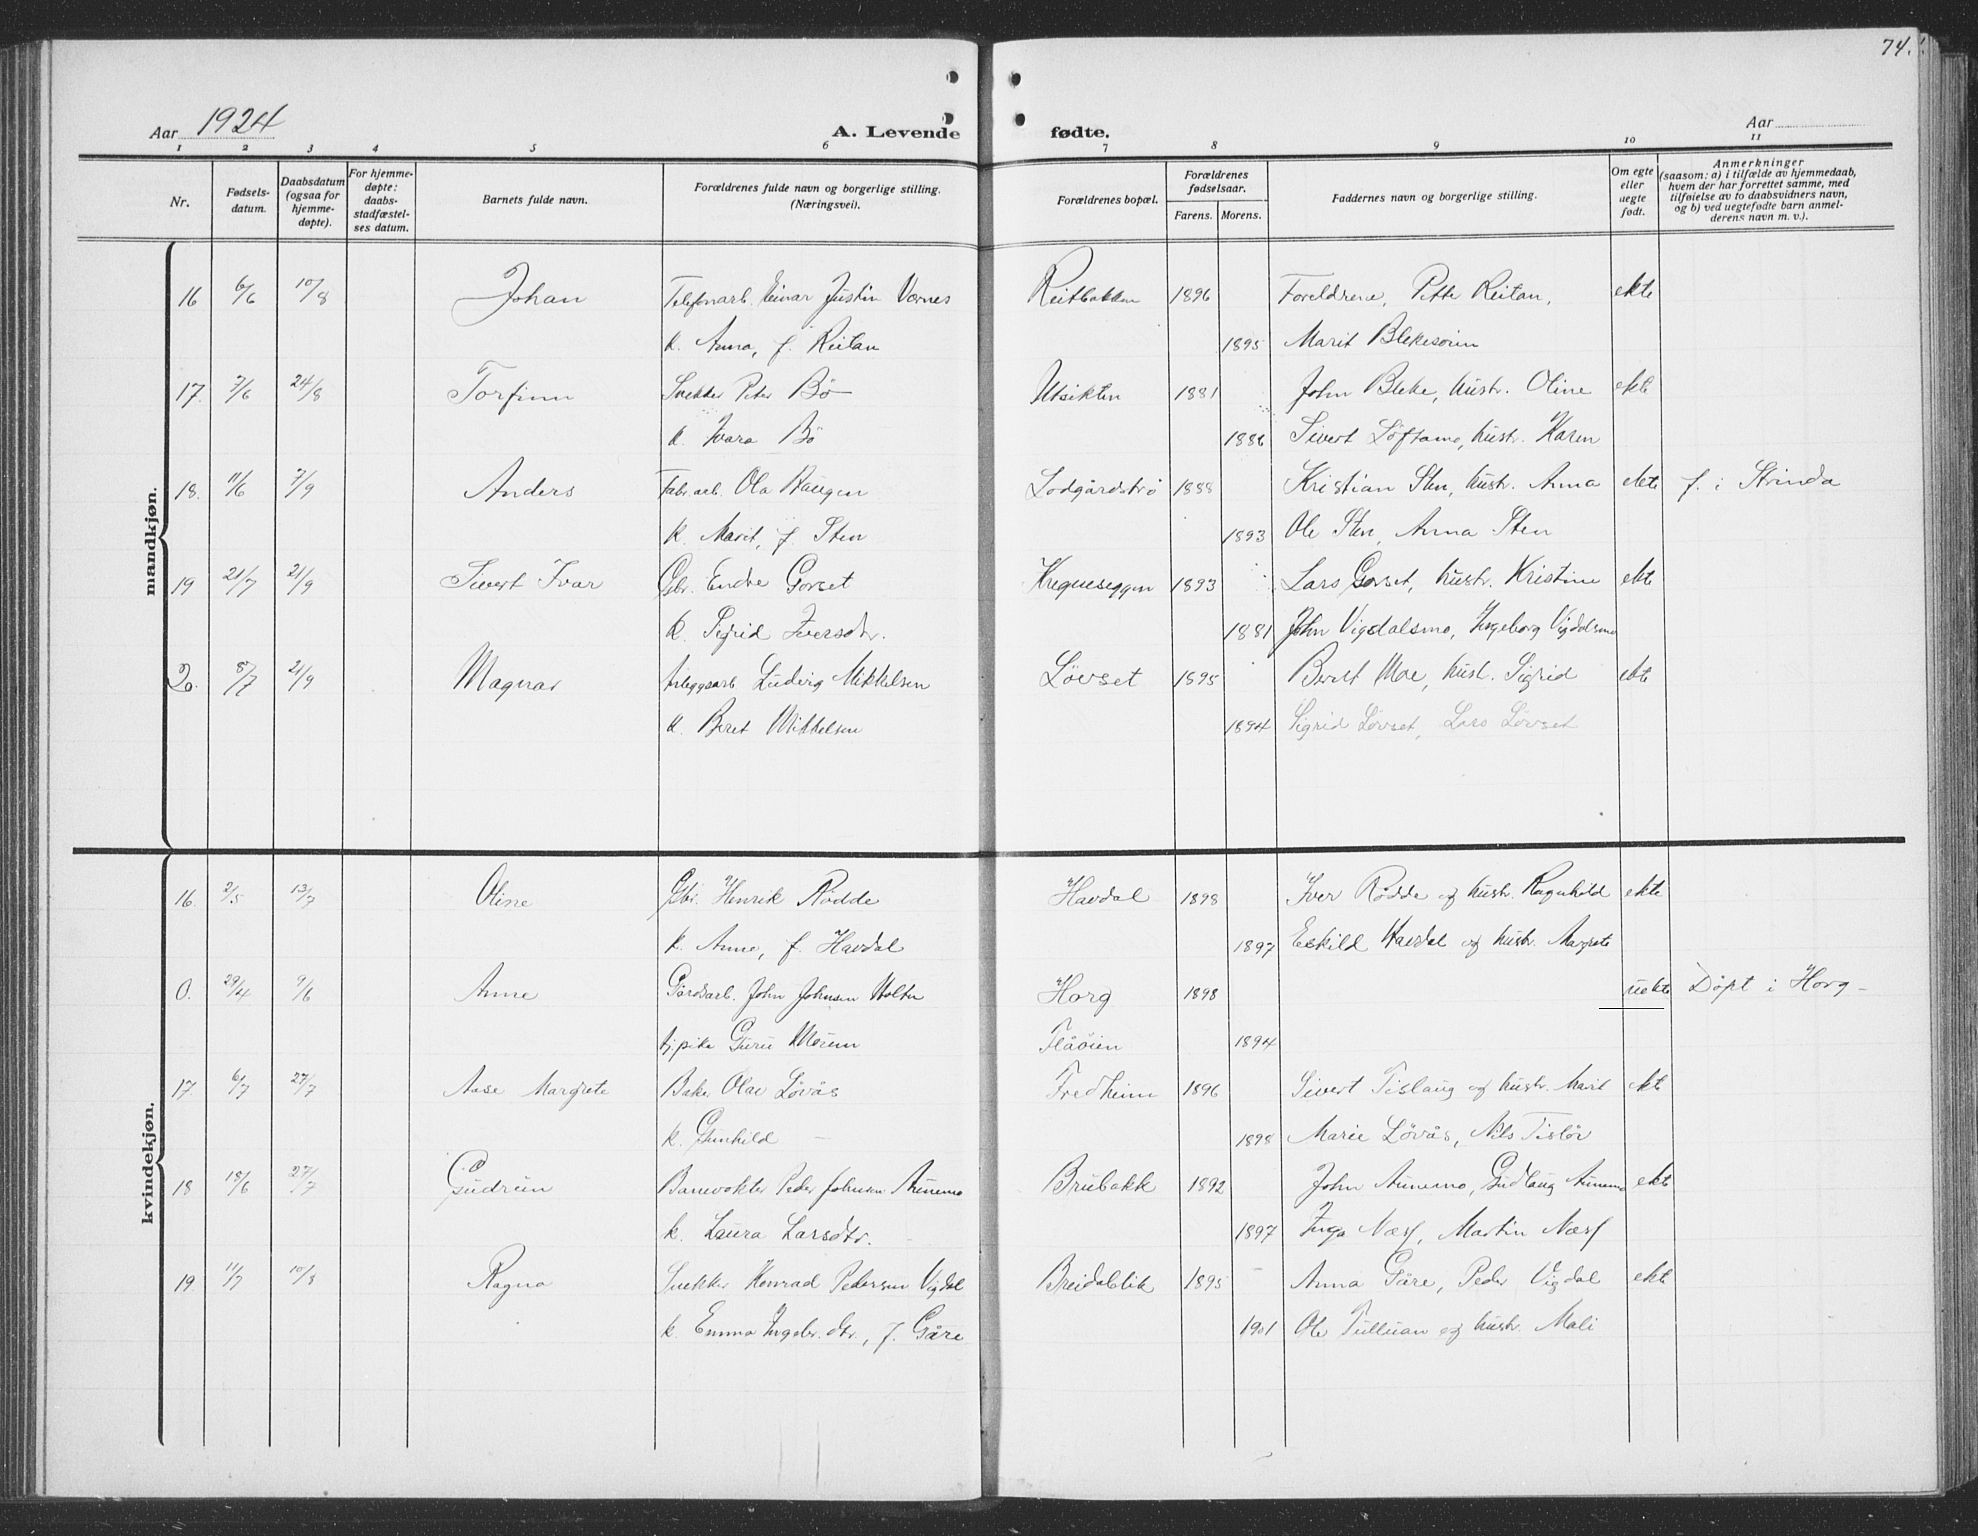 74.
Aar 1924
A. Levende fødte.
Aar
1 2 3 4 5 6 7 8 9 10 11
Nr.
Fødsels-
datum.
Daabsdatum
(ogsaa for
hjemme-
døpte).
For hjemme-
døpte:
daabs-
stadfæstel-
ses datum.
Barnets fulde navn.
Forældrenes fulde navn og borgerlige stilling.
(Næringsvei).
Forældrenes bopæl.
Forældrenes
fødselsaar.
Farens. Morens.
Faddernes navn og borgerlige stilling.
Om egte
eller
uegte
født.
Anmerkninger
(saasom: a) i tilfælde av hjemmedaab,
hvem der har forrettet samme, med
tilføielse av to daabsvidners navn,
og b) ved uegtefødte barn anmel-
derens navn m. v.).
mandkjøn.
16 6/6 10/8 Johan Telefonarb. Einar Justin Vornes Reitbakken 1896 Foreldrene, Petter Reitan, ekte
k. Anna, f. Reitan 1895 Marit Blekesøun
17. 7/6 24/8 Torfinn Snekker Peter Bø Utsikten 1881 John Bleke, hustr. Oline ekte
k. Ivara Bø 1886 Sivert Løftamo, hustr. Karen
18. 11/6 7/9 Anders Fabr.arb. Ola Haugen Lodgårdstrø 1888 Kristian Sten, hustr. Anna ekte f. i Strinda
k. Marit, f. Sten 1893 Ole Sten, Anna Sten
19 21/7 21/9 Sivert Ivar Gbr. Endre Gorset 1893 Lars Gorset, hustr. Kristine ekte
k. Sigrid Iversdtr. 1881 John Vigdalsmo, Ingeborg Vigdalsmo
20. 8/7 21/9 Magnar Anleggsarb. Ludvig Mikkelsen Løvset 1895 Berdt Moe, hust. Sigrid ekte
k. Beret Mikkelsen 1894 Sigrid Løvset, Lars Løvset
kvindekjøn.
16. 2/5 13/7 Oline Gbr. Henrik Rødde Havdal 1898 Iver Rødde og hustr. Ragnhild ekte
k. Anne, f. Havdal 1897 Eskild Havdal og hustr. Margrete
0. 29/4 9/6 Anne Gårdsarb. John Johnsen Horg 1898 uekte Døpt i Horg -
tj.pike Guru Flåøien 1894
17. 6/7 27/7 Aase Margrete Baker Olav Løvås Fredheim 1896 Sivert Tislaug og hustr. Marit ekte
k. Gunhild - 1898 Marie Løvås, Nils Tisløv
18 18/6 27/7 Gudrun Banevokter Peder Johnsen Aunemo Brubakk 1892 John Aunemo, Gudlaug Aunemo ekte
k. Laura Larsdtr. 1897 Inga Næss, Martin Næss
19. 11/7 10/8 Ragna Snekker Konrad Pedersen Vigdal Breidablik 1895 Anna Gåre, Peder Vigdal ekte
k. Emma Ingebr.dtr., f. Gåre 1901 Ole Tulluan og hustr. Mali